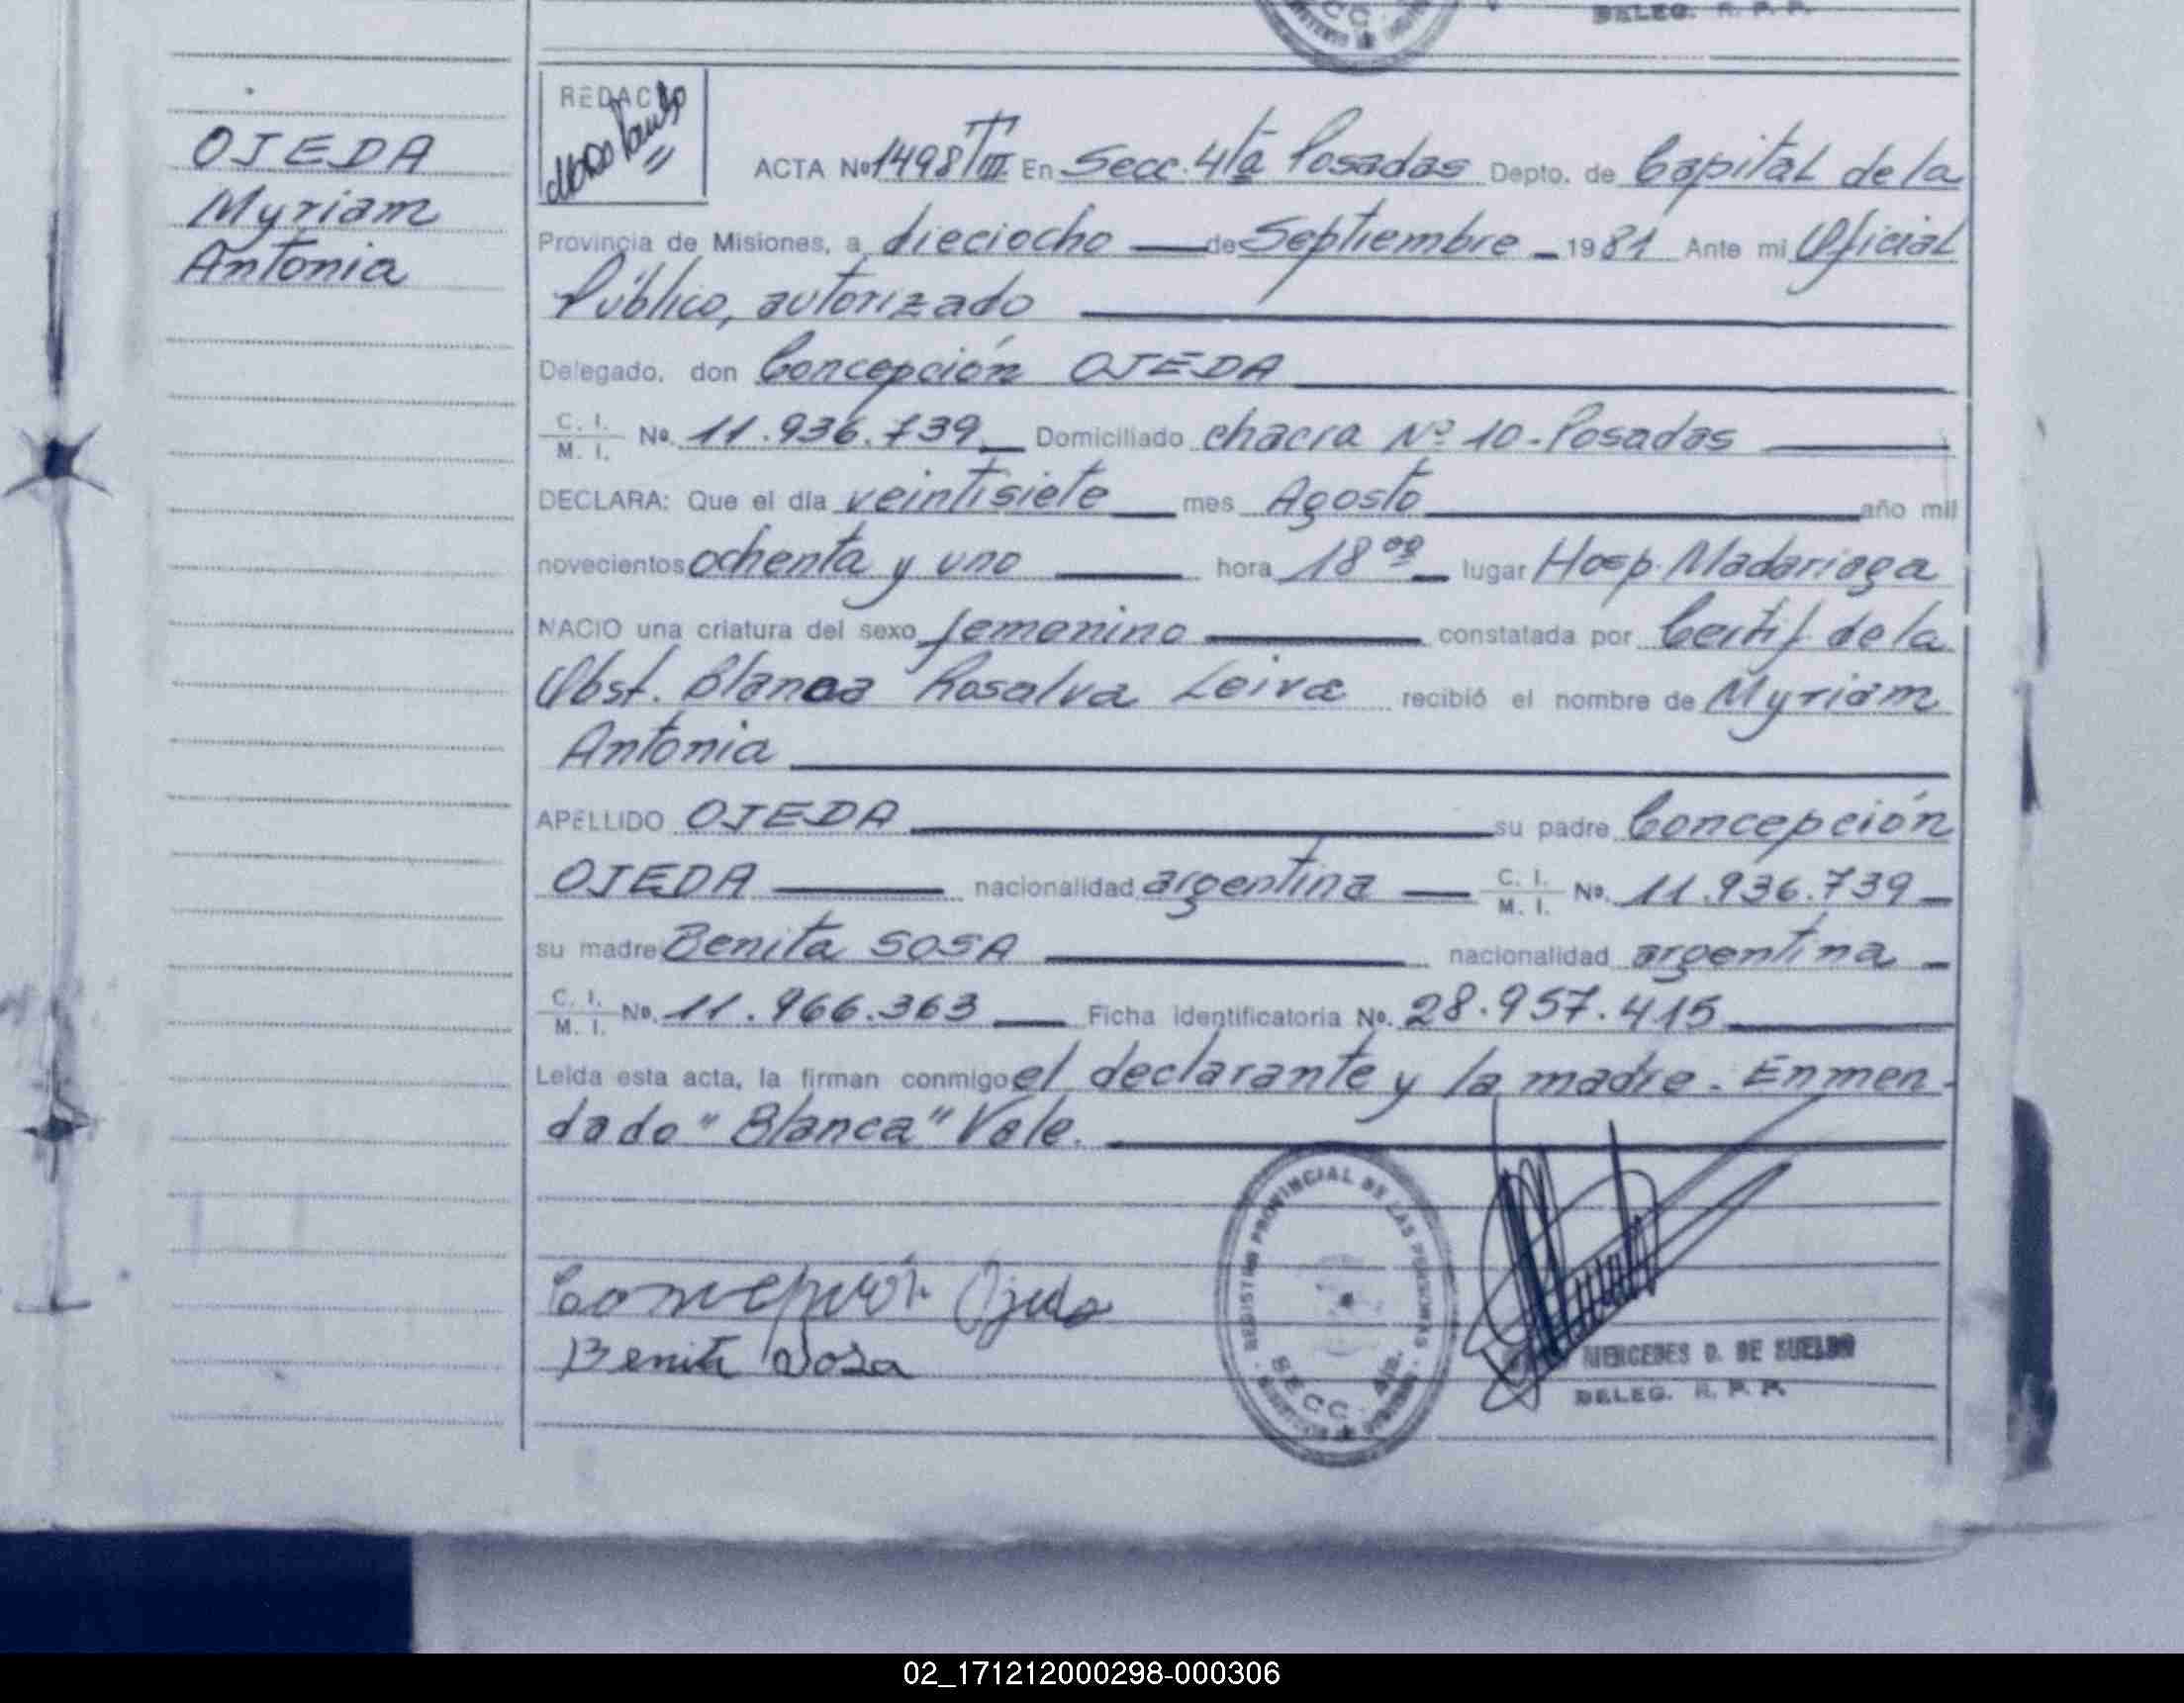 DELEG. R. P. P.
SECC.
OJEDA
Myriam
Antonia
REDACTO
ACTA Nº 1498/TIII. En Secc. 4ta Posadas Depto. de Capital de la
Provincia de Misiones, a dieciocho de Septiembre 1981 Ante mi Oficial
Público, autorizado
Delegado, don Concepción OJEDA
C. I.
M. I. Nº. 11.936.739 Domiciliado chacra Nº 10-Posadas
DECLARA: Que el día veintisiete mes Agosto año mil
novecientos ochenta y uno hora 18⁰⁰ lugar Hosp. Madariaga
NACIO una criatura del sexo femenino constatada por Certif de la
Obst. Blanca Rosalva Leiva recibió el nombre de Myriam
Antonia
APELLIDO OJEDA su padre Concepción
OJEDA nacionalidad argentina C. I. M. I. Nº. 11.936.739
su madre Benita SOSA nacionalidad argentina
C. I.
M. I. Nº. 11.966.363 Ficha identificatoria Nº. 28.957.415
Leida esta acta, la firman conmigo el declarante y la madre. Enmen-
dado "Blanca" Vale.
REGISTRO PROVINCIAL DE LAS PERSONAS
SECC. 4ta.
Concepción Ojeda
Benita Sosa
MERCEDES D. DE SUELDO
DELEG. R. P. P.
02_171212000298-000306